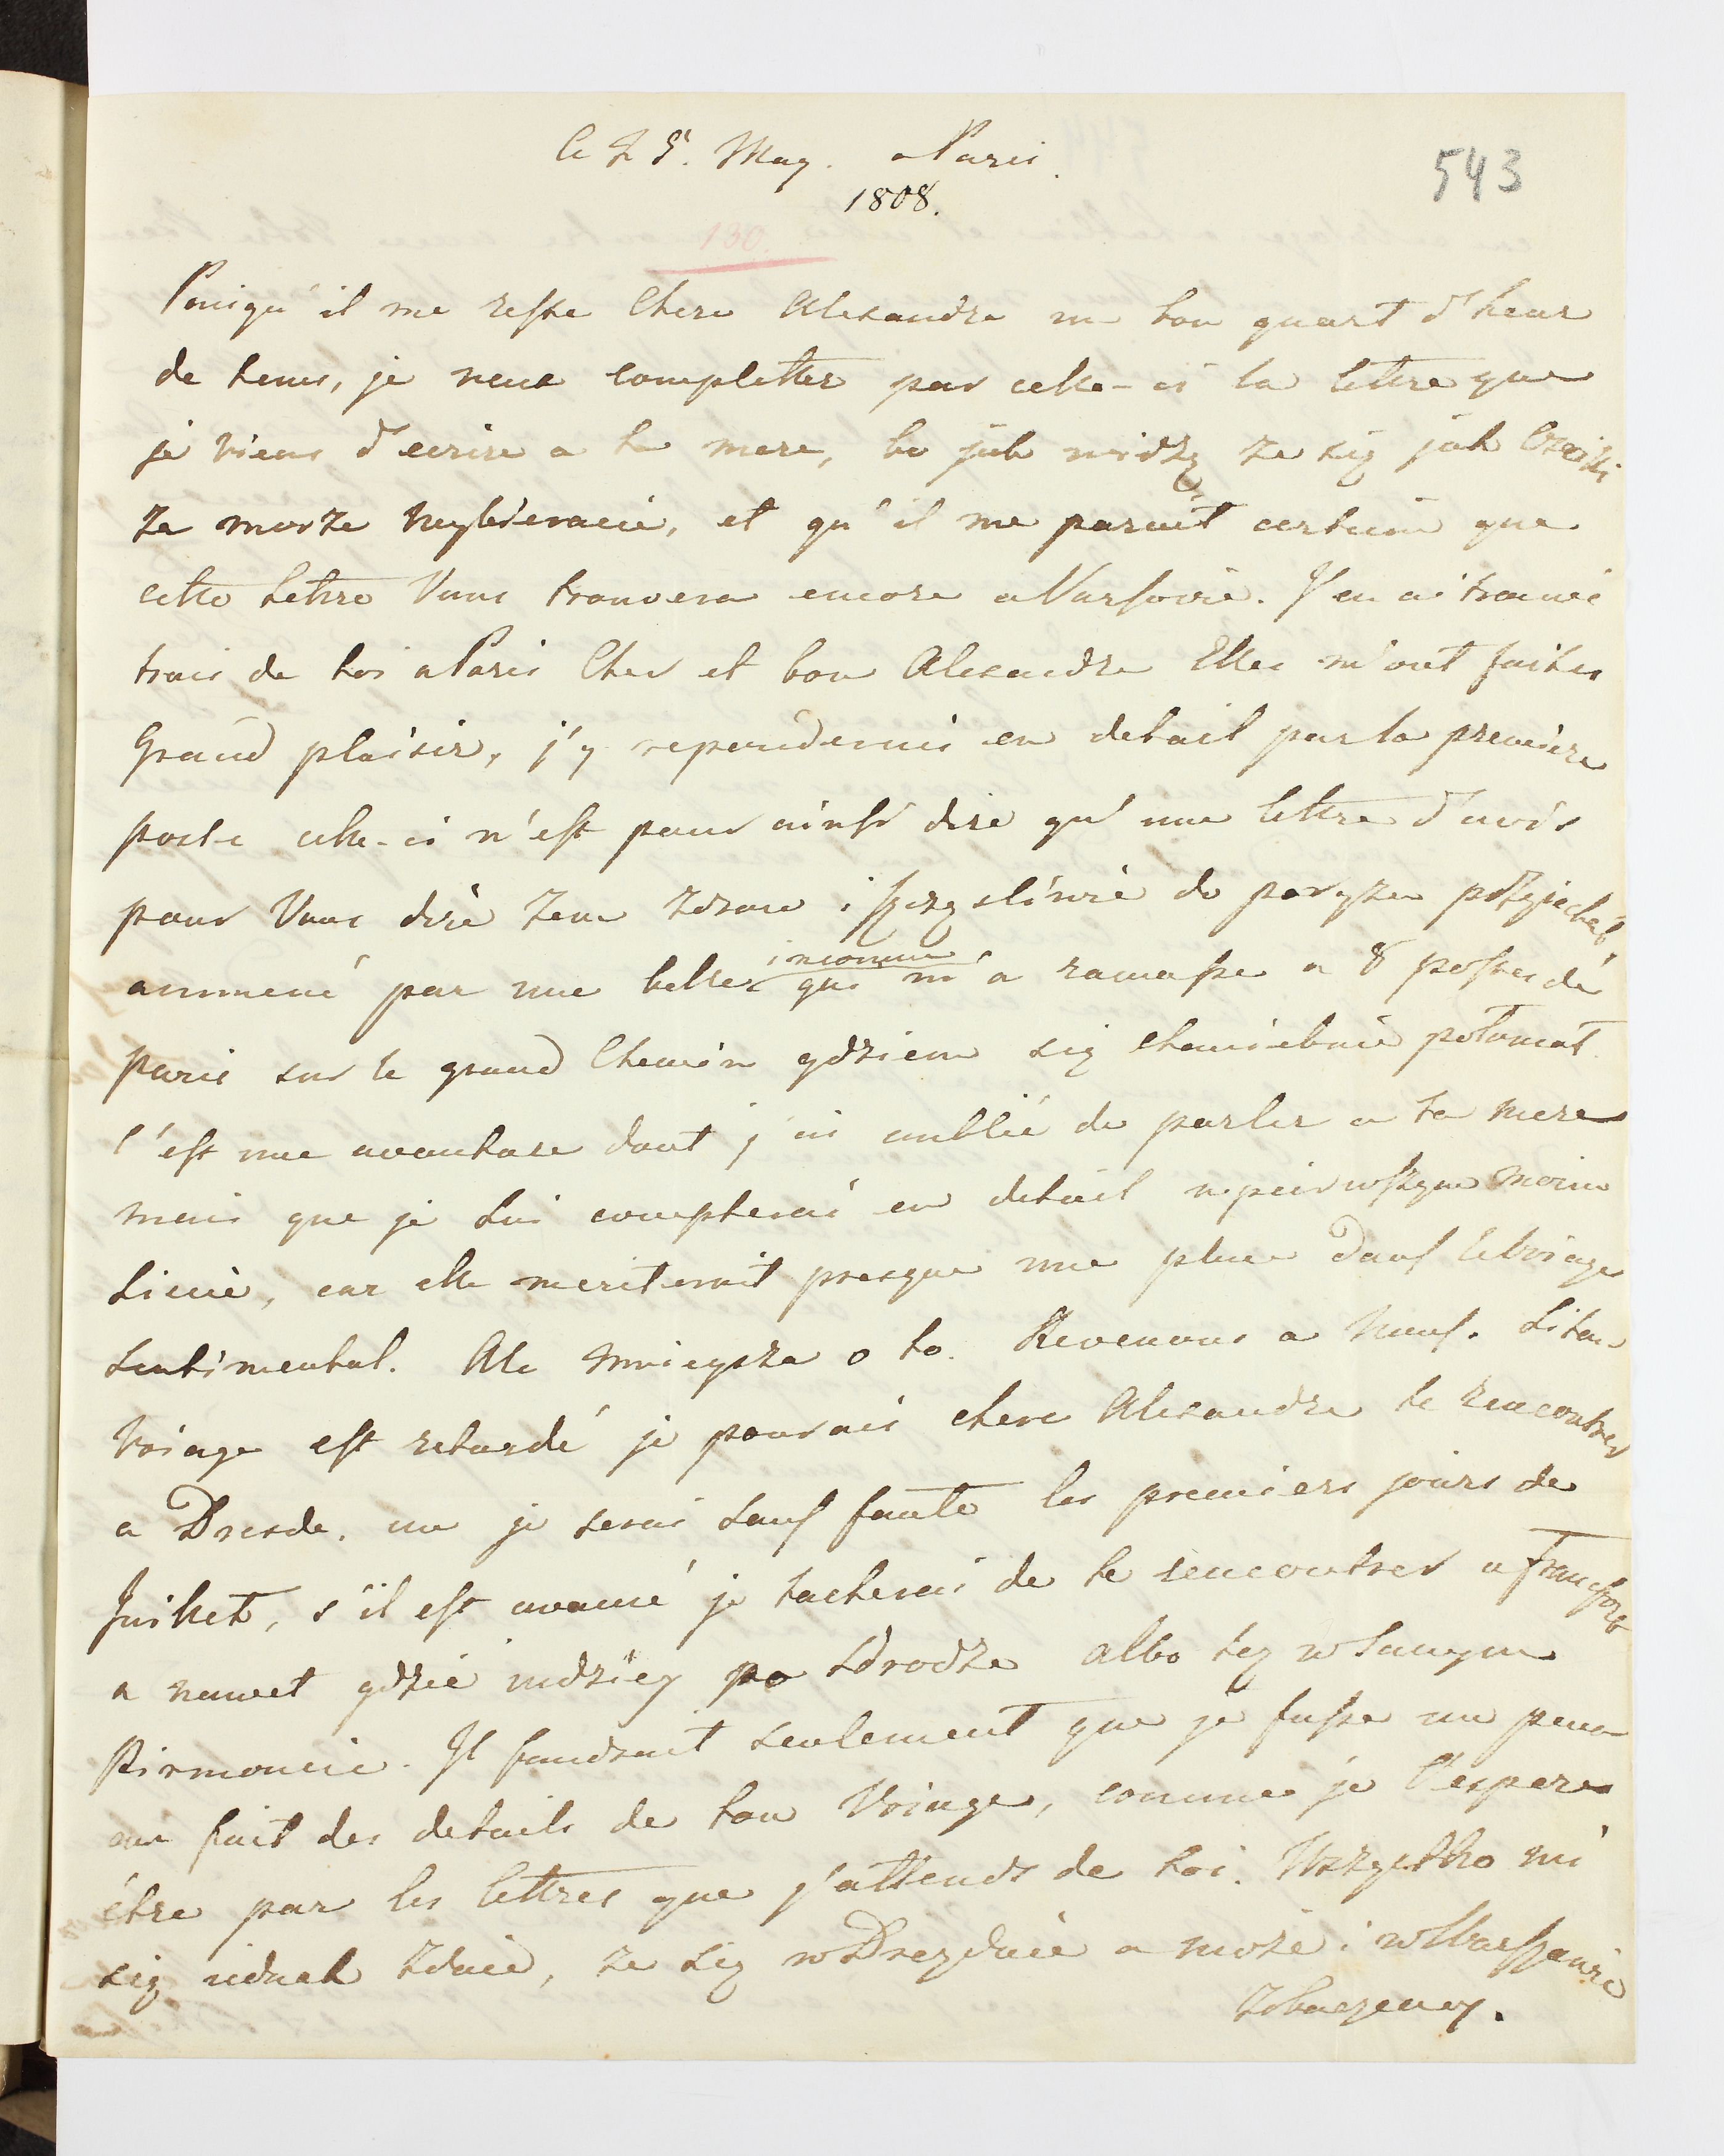 Ce 25. May. a Paris.
1808.
543
130.
Puisqu'il me reste Chere Alexandre un bon quart d'heur
de tems, je veux completter par celle-ci la lettre que
je viens d'ecrire a ta mere, bo jak widzę ze się jak
ze morze wybieracie, et qu'il me parait certain que
cette lettre Vous trouvera encore a Varsovie. J'en ai trouvé
trois de toi a Paris Cher et bon Alexandre Elles m'ont faites
Grand plaisir, j'y reponderais en detail par la premiere
poste celle-ci n'est pour ainsi dire qu'une lettre d'avis
pour Vous dire zem zdrow i szczęsliwie do paryza przyjechał
ammené par une belle inconnue qui m'a ramasse a 8 postes de
Paris sur le grand Chemin gdziem się połamał.
C'est une avanture dont j'ai oublié de parler a ta mere
mais que je lui compterai en detail w pierwszym moim
Liscie, car elle meriterait presque une place dans le Voiage
Sentimental. Ale mnieysza o to. Revenons a Nous. Si ton
Voiage est retardé je pourais chere Alexandre te rencontrer
a Dresde. ou je serai sauf faute les premiers jours de
Juillet, s'il est avancé je tacherai de te rencontrer a Francfort
a nawet gdzie indziey po drodze albo tez w samym
Pirmoncie. Il faudrait seulement que je fusse un peu
au fait des details de ton Voiage, comme je l'espere
être par les lettres que j'attends de toi. Wszystko mi
się iednak zdaie, ze się w Dreznie a moze i w Warszawie
zobaczemy.